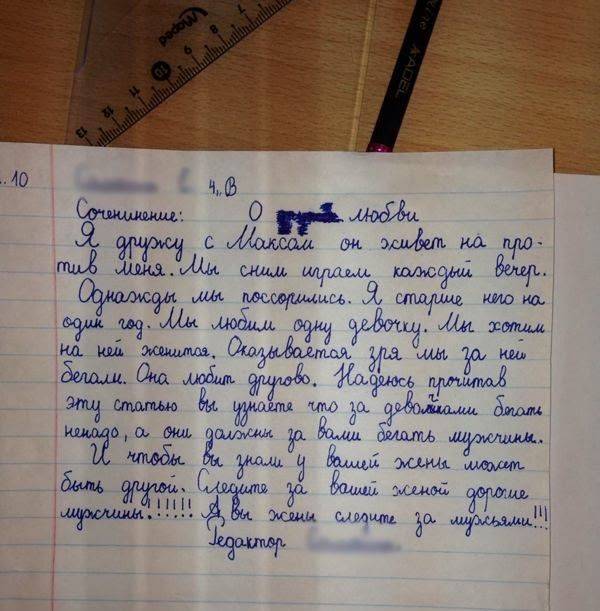 Maped
13 12 11 10 9 8 7 6
KADEL
.. 10
4 „В
Сочининение: О любви
Я дружу с Максом он живет на про-
тив меня. Мы сним играем каждый вечер.
Однажды мы поссорились. Я старше него на
один год. Мы любим одну девочку. Мы хотим
на ней женится. Оказывается зря мы за ней
бегали. Она любит другово. Надеюсь прочитав
эту статью вы узнаете что за девочками бегать
ненадо, а они должны за вами бегать мужчины.
И чтобы вы знали у вашей жены может
быть другой. Следите за вашей женой дорогие
мужчины!!!!!! А вы жены следите за мужьями!!!
Редактор